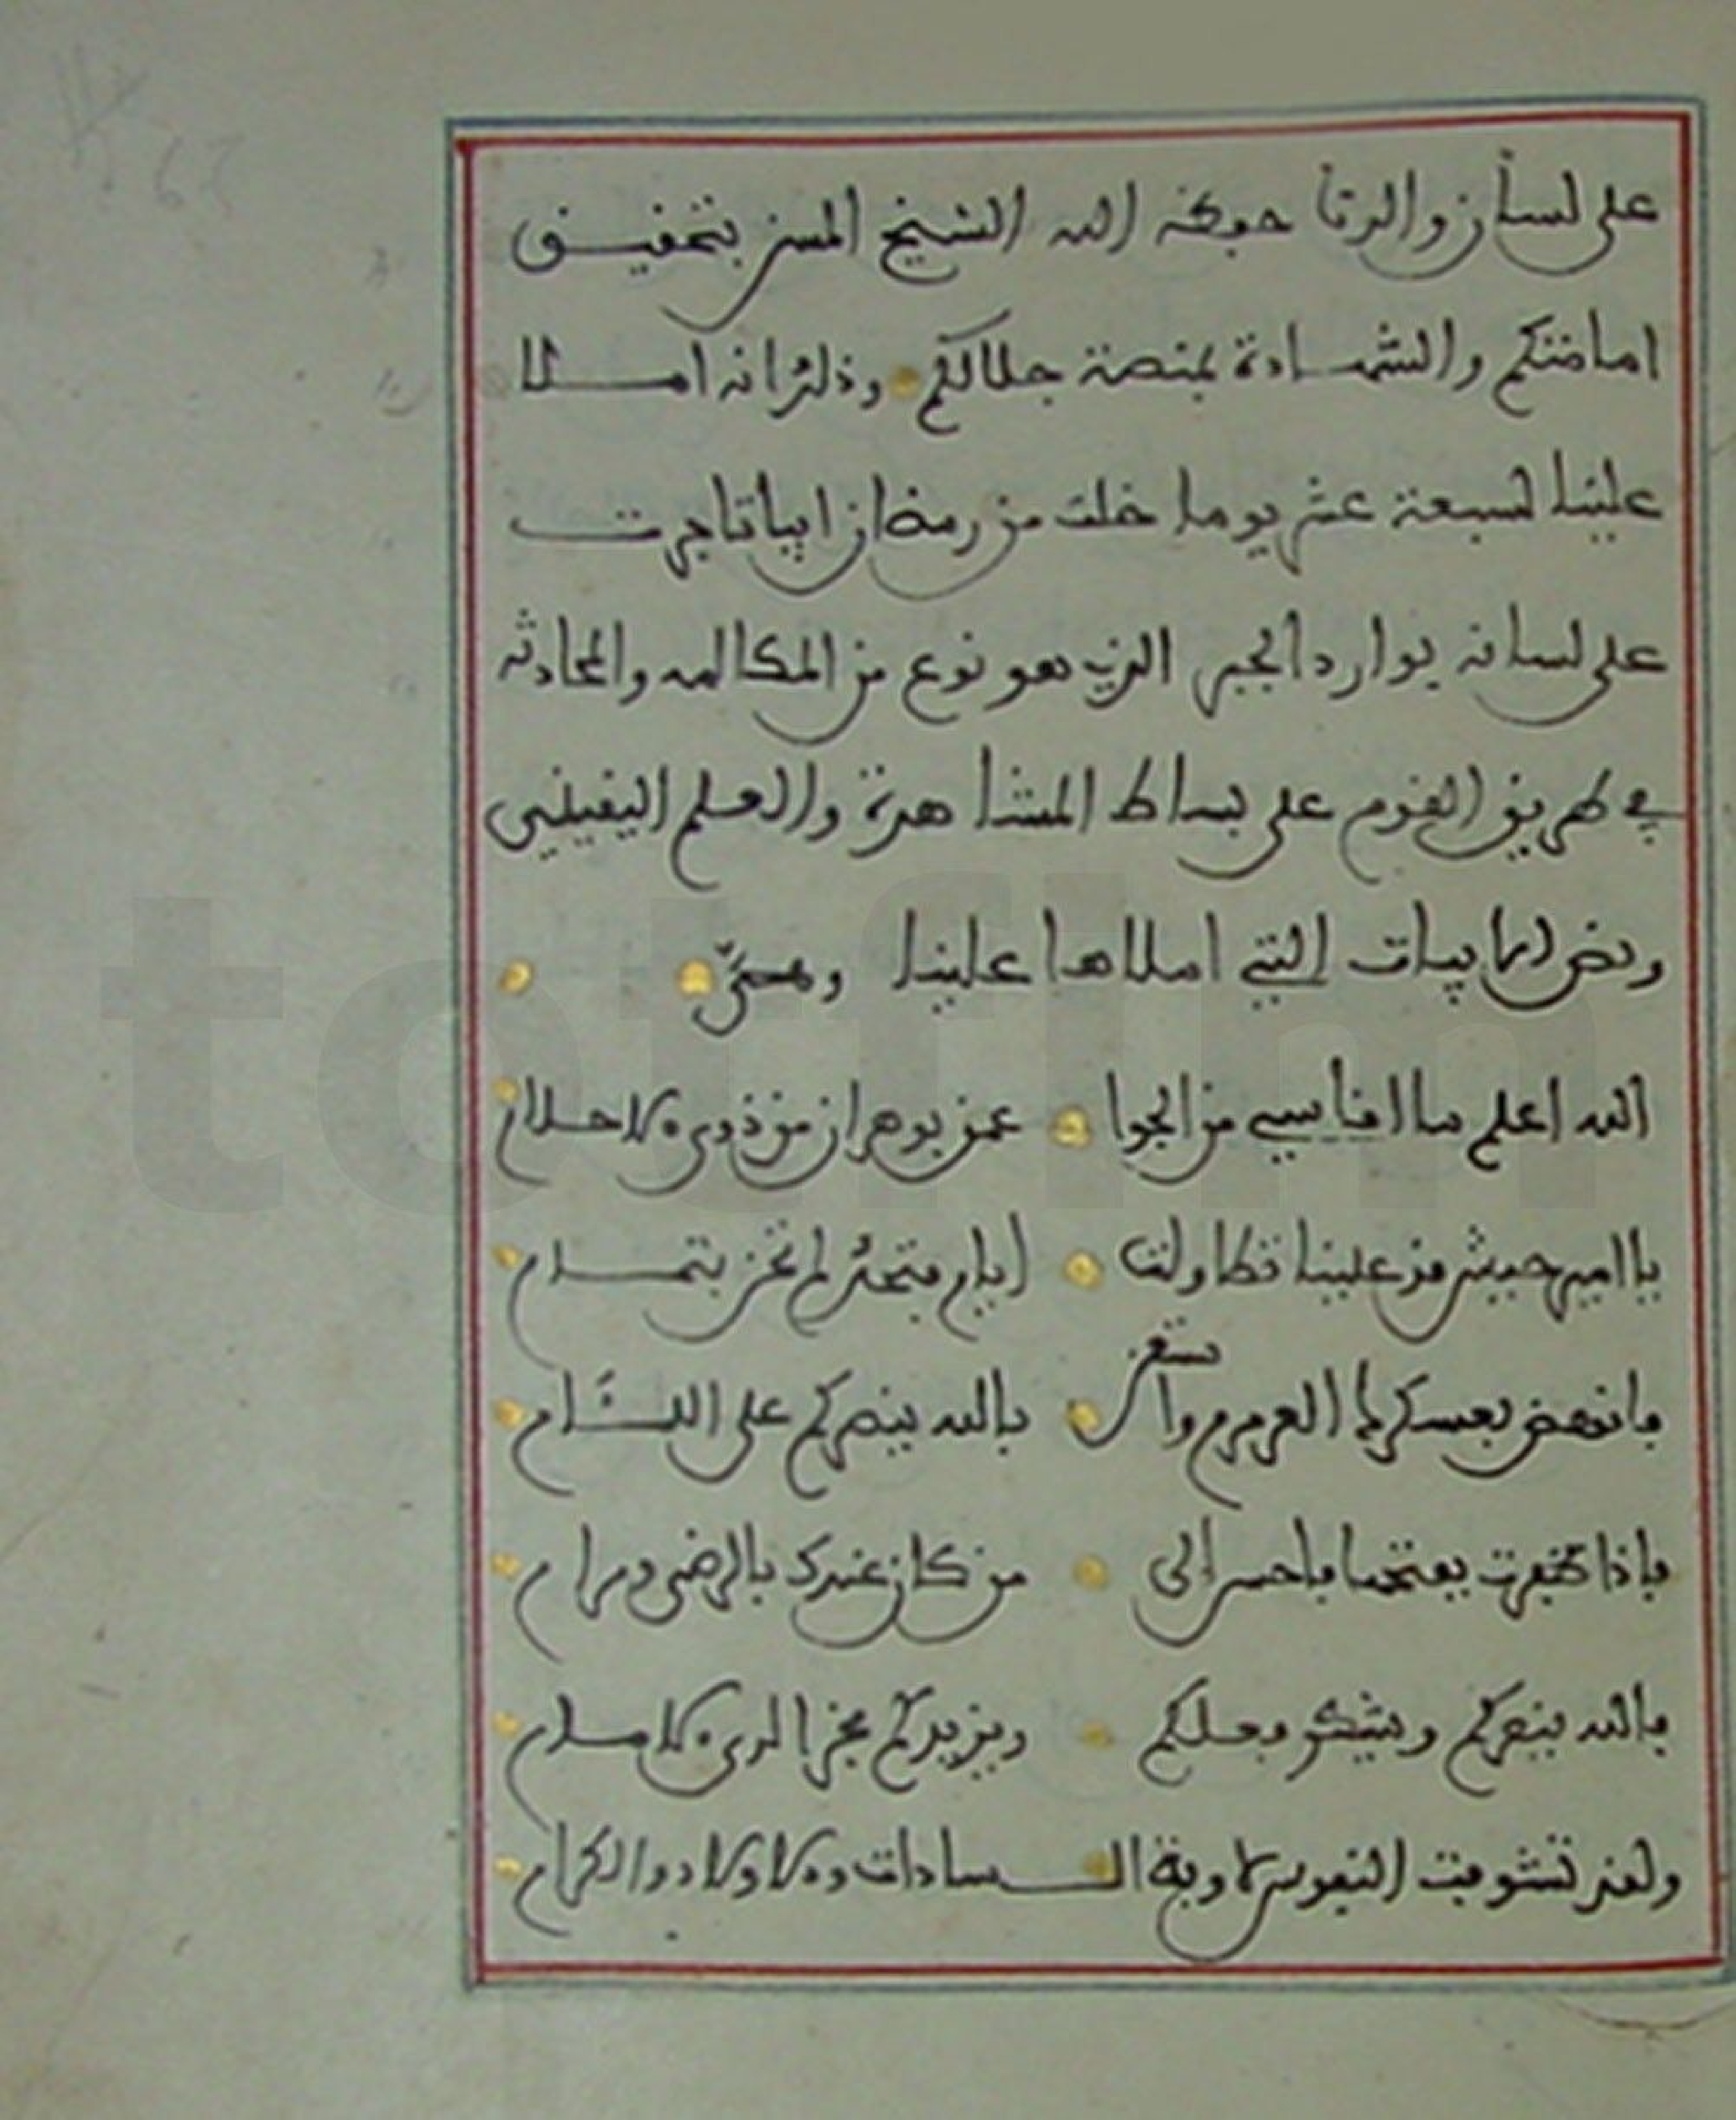 على لسان والدنا حفظه الله الشيخ المسن بتحقيق
امامتكم والشهادة بمنصة جلالكم وذلك انه امـلا
علينا لسبعة عشر يوما خلت من رمضان ابياتا جرت
على لسانه بوارد الجبر الذي هو نوع من المكالمه والمحادثه
في طريق القوم على بساط المشاهدة والعلم اليقيني
ونص الابيات التي املاها علينا وهي
الله اعلم ما اقاسي من الجوا عن بوهران من ذوي الاحلام
يا امير جيش من علينا تطاولت ايام فتحك لم نحز بتمام
فانهض بعسكرك العرمرم وا ستعن فالله ينصركم على اللئام
فاذا ظفرت بفتحها فاحسن الى من كان عندك بالرضى ومرام
فالله ينصركم ويشكر فعلكم ويزيدكم عزا لدى الامام
ولقد تشوقت النفوس لاوبة الـسادات والاولاد والكرام
totfim